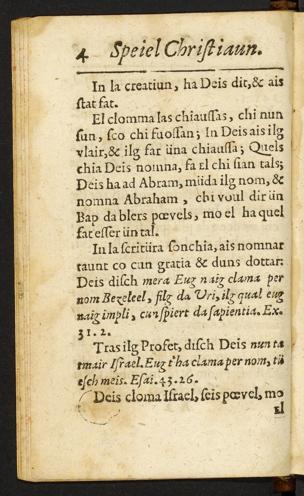 4 Speiel Chriſtiaun.
In la creatiun, ha Deis dit,& ais
ſtat fat.
El clomma las chiauſſas, chi nun
ſun, ſco chi fuoſſan; In Deis ais ilg
vlair,& ilg far üna chiauſſa; Quels
chia Deis nomna, fa El chi ſian tals;
Deis ha ad Abram, müda ilg nom, &
nomna Abraham, chi voul dir ün
Bap da blers pœvels, mo el ha quel
fat eſſer ün tal.
In la ſcritüra ſonchia, ais nomnar
taunt co cun gratia & duns dottar:
Deis diſch mera Eug naig clama per
nom Bezeleel, filg da Uri, ilg qual eug
naig impli, cun ſpiert da ſapientia. Ex.
31.2.
Tras ilg Profet, diſch Deis nun ta
tmair Iſrael. Eug t'ha clama per nom, tü
eſch meis. Eſai. 43.26.
Deis cloma Iſrael, ſeis pœvel, mo
El